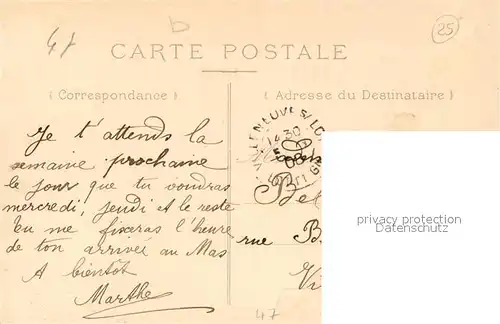 47
b
25
CARTE POSTALE
(Correspondance)
(Adresse du Destinataire)
Je t'attends la
semaine prochaine
le jour que tu voudras
mercredi, jeudi et le reste
Tu me fixeras l'heure
de ton arrivée au Mas
A bientôt
Marthe
VILLENEUVE S/ LOT
14 30
08
Bel
rue B
Vi
47
privacy protection
Datenschutz
protection des données